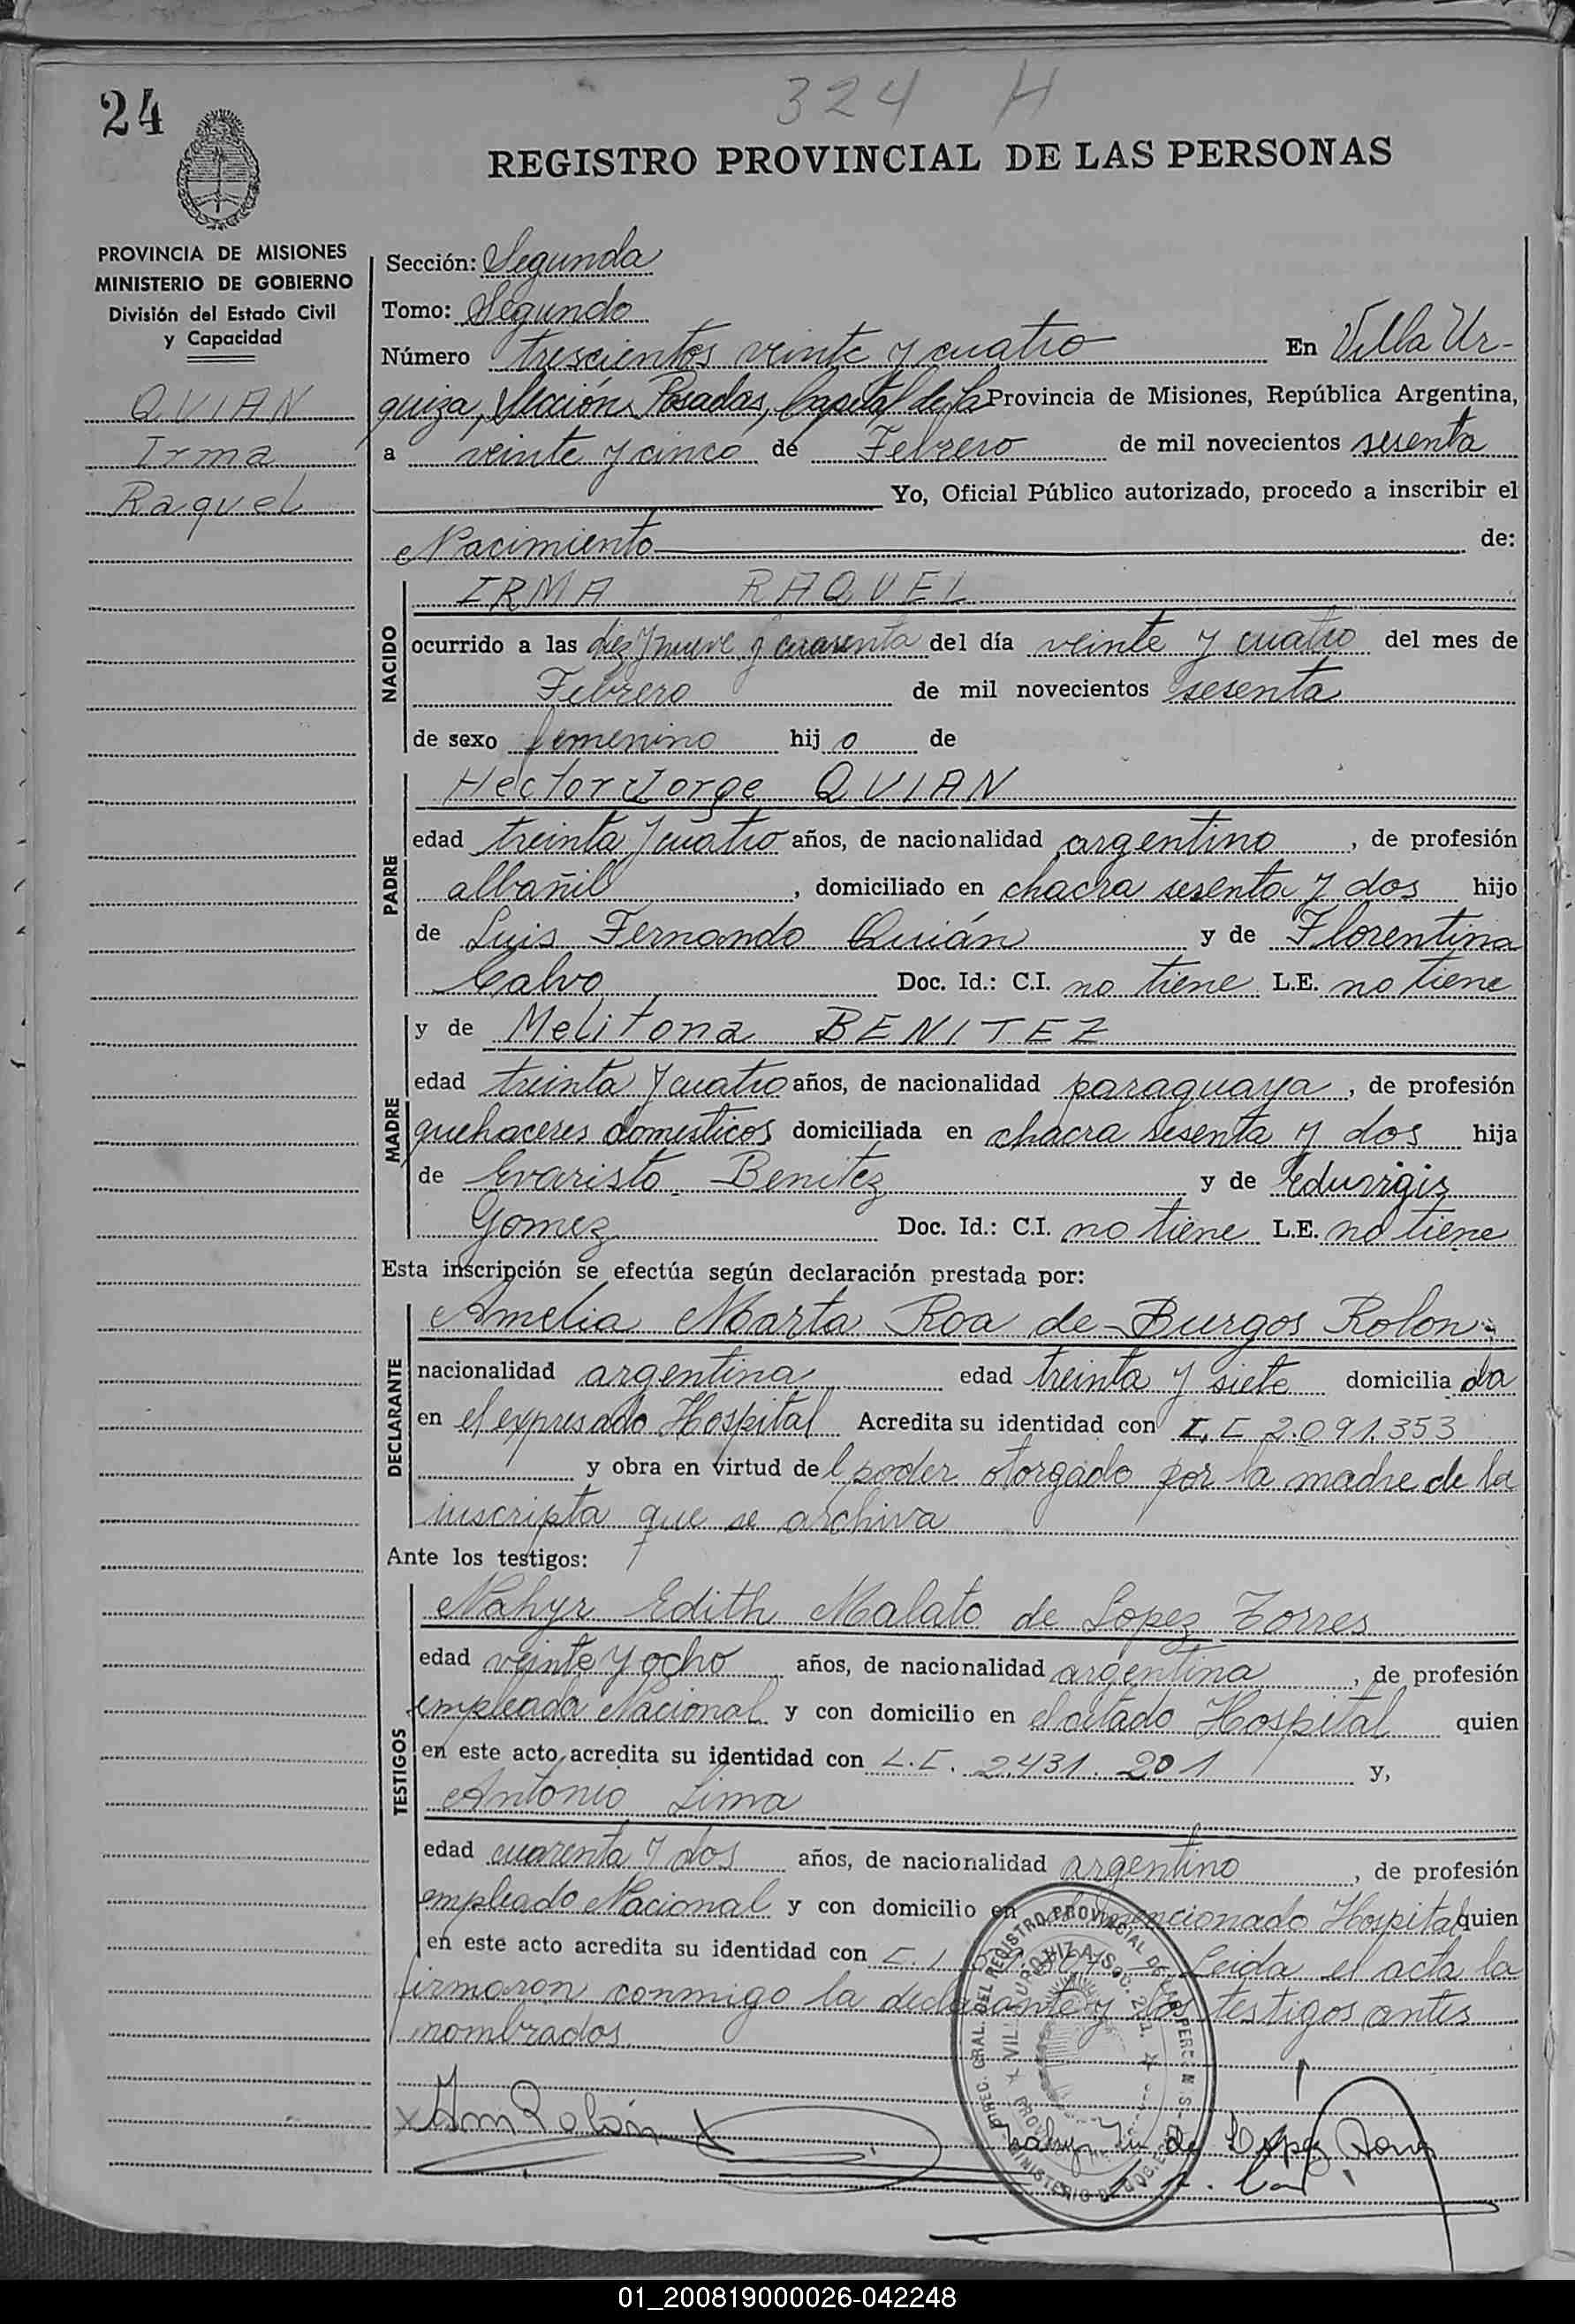 324 H
24
REGISTRO PROVINCIAL DE LAS PERSONAS
PROVINCIA DE MISIONES
MINISTERIO DE GOBIERNO
División del Estado Civil
y Capacidad
QUIAN
Irma
Raquel
Sección: Segunda
Tomo: Segundo
Número trescientos veinte y cuatro En Villa Ur-
quiza, Sección Posadas, Capital de la Provincia de Misiones, República Argentina,
a veinte y cinco de Febrero de mil novecientos sesenta
Yo, Oficial Público autorizado, procedo a inscribir el
Nacimiento de:
NACIDO
IRMA RAQUEL
ocurrido a las diez y nueve y cuarenta del día veinte y cuatro del mes de
Febrero de mil novecientos sesenta
de sexo femenino hij o de
PADRE
Hector Jorge QUIAN
edad treinta y cuatro años, de nacionalidad argentino, de profesión
albañil, domiciliado en chacra sesenta y dos hijo
de Luis Fernando Quián y de Florentina
Calvo Doc. Id.: C.I. no tiene L.E. no tiene
MADRE
y de Melitona BENITEZ
edad treinta y cuatro años, de nacionalidad paraguaya, de profesión
quehaceres domesticos domiciliada en chacra sesenta y dos hija
de Evaristo Benitez y de Eduvigis
Gomez Doc. Id.: C.I. no tiene L.E. no tiene
Esta inscripción se efectúa según declaración prestada por:
DECLARANTE
Amelia Marta Roa de Burgos Rolon
nacionalidad argentina edad treinta y siete domicilia da
en el expresado Hospital Acredita su identidad con L.C 2.091.353
y obra en virtud de l poder otorgado por la madre de la
inscripta que se archiva
Ante los testigos:
TESTIGOS
Nahyr Edith Malato de Lopez Torres
edad veinte y ocho años, de nacionalidad argentina, de profesión
empleada Nacional y con domicilio en el citado Hospital quien
en este acto acredita su identidad con L.C. 2.431.201 y,
Antonio Lima
edad cuarenta y dos años, de nacionalidad argentino, de profesión
empleado Nacional y con domicilio en el mencionado Hospital quien
en este acto acredita su identidad con C.I. Leida el acta la
firmaron conmigo la declarante y los testigos antes
nombrados.
Am Rolón
de Lopez Torres
01_200819000026-042248